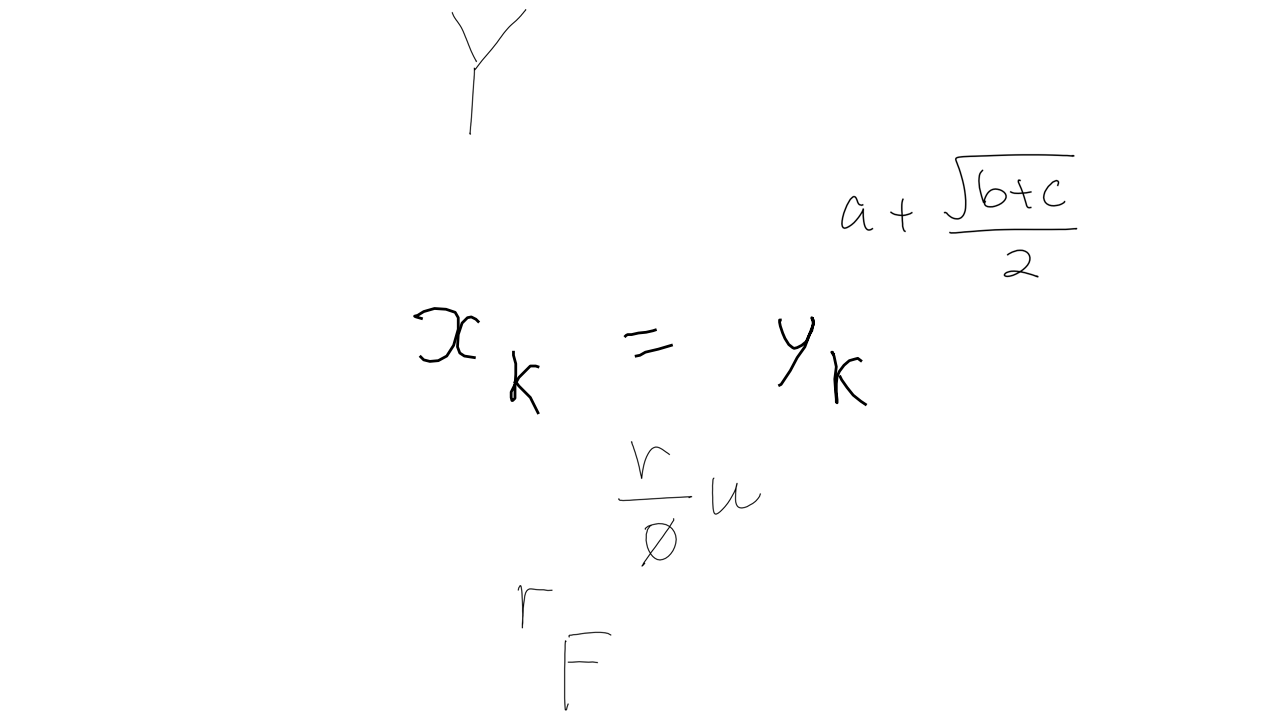 Y
a + \frac{\sqrt{b+c}}{2}
x_k = y_k
\frac{r}{\phi} u
r_F